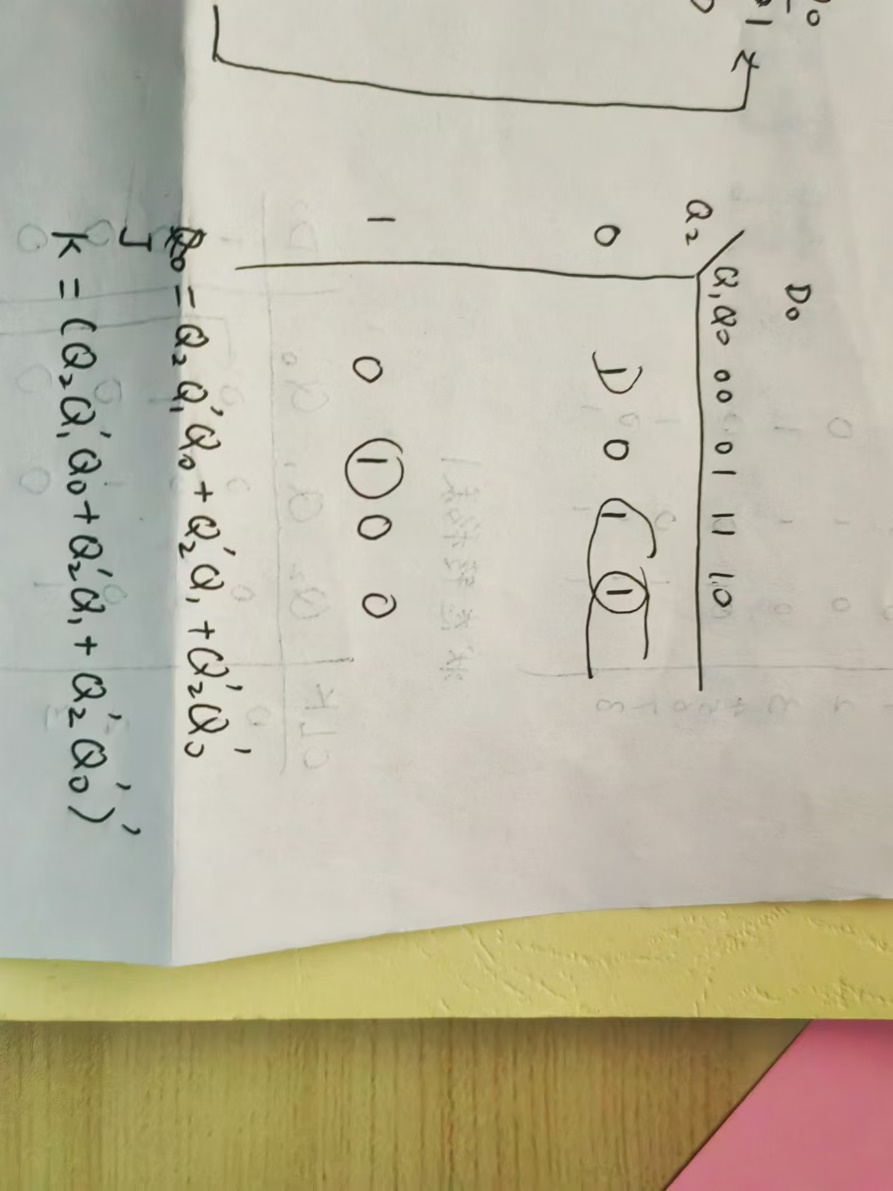 D₀
Q₂\Q₁Q₀ 00 01 11 10
0 D 0 1 1
1 0 1 0 0
= Q₂Q₁'Q₀ + Q₂'Q₁ + Q₂'Q₀'
J
K = (Q₂Q₁'Q₀ + Q₂'Q₁ + Q₂'Q₀')'